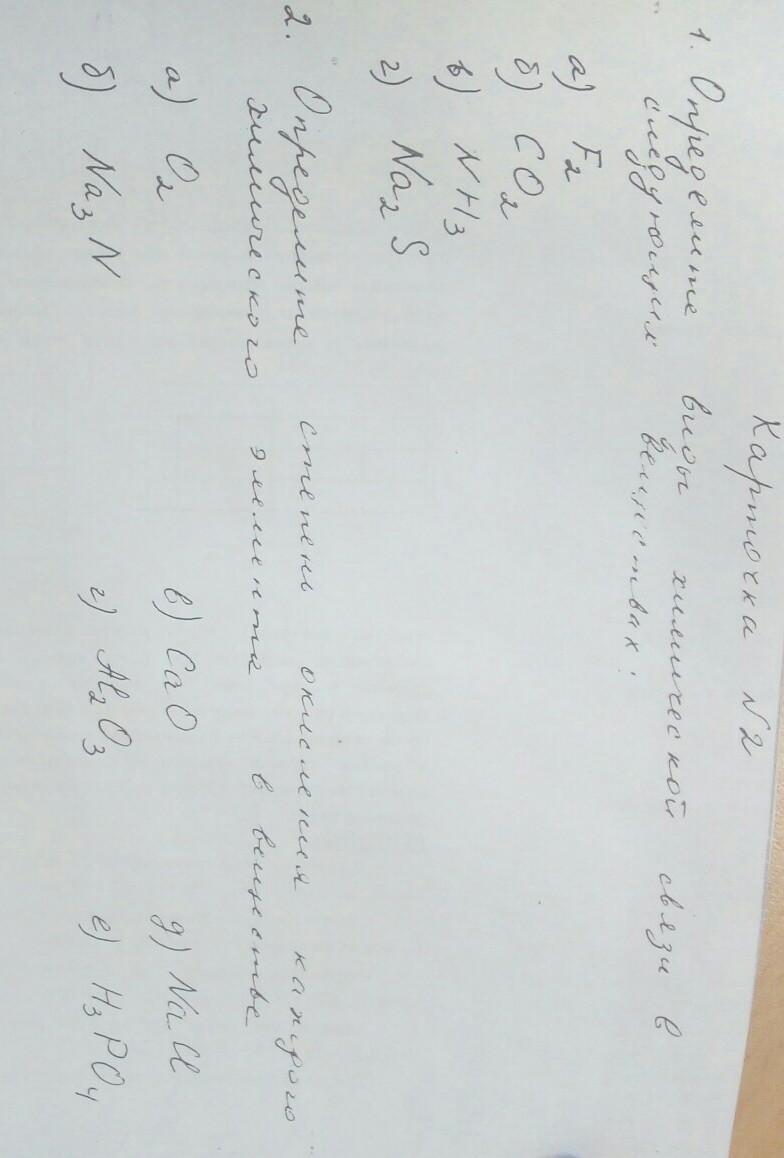 Карточка N2
1. Определите виды химической связи в
следующих веществах:
а) F₂
б) CO₂
в) NH₃
г) Na₂S
2. Определите степень окисления каждого
химического элемента в веществе
а) O₂ в) CaO д) NaCl
б) Na₃N г) Al₂O₃ е) H₃PO₄